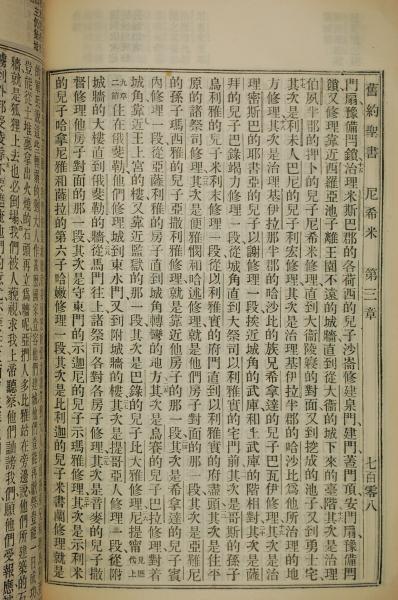 舊約聖書 尼希米 第三章 七百零八
門扇豫備門鎖治理米斯巴郡的各荷西的兒子沙崙修建泉門建門蓋門頂安門扇豫備門
鎖又修理靠近西羅亞池子離王園不遠的城牆直到從大衞的城下來的臺階其次是治理
伯夙半郡的押卜的兒子尼希米修理直到大衞陵寢的對面又到挖成的池子又到勇士宅
其次是利未人巴尼的兒子利宏修理其次是治理基伊拉半郡的哈沙比為他所治理的地
方修理其次是治理基伊拉那半郡的哈沙比的族兄希拿達的兒子巴瓦伊修理其次是治
理密斯巴的耶書亞的兒子以謝修理一段挨近城角的武庫和上武庫的階相對其次是薩
拜的兒子巴錄竭力修理一段從城角直到大祭司以利雅實的宅門前其次是哥斯的孫子
烏利雅的兒子米利末修理一段從以利雅實的府門直到以利雅實的府盡頭其次是住平
原的諸祭司修理其次是便雅憫和哈述修理就是他們房子對面的那一段其次是亞雅尼
的孫子瑪西雅的兒子亞撒利雅修理就是靠近他房子的那一段其次是希拿達的兒子賓
內修理一段從亞薩利雅的房子直到城角轉彎的地方其次是烏賽的兒子巴拉修理對着
城角靠近王上宮的樓又靠近監獄的那一段其次是巴錄的兒子比大雅修理尼提甯見歷代上
九章二節住在俄斐勒他們修理城到東水門又到附城牆的樓其次是提哥亞人修理一段從附
城牆的大樓直到俄斐勒的牆從馬門往上諸祭司各對各房子修理其次是音麥的兒子撒
督修理他房子對面的一段其次是守東門的示迦尼的兒子示瑪雅修理其次是示利米
的兒子哈拿尼雅和薩拉的第六子哈嫩修理一段其次是比利迦的兒子米書蘭修理就是